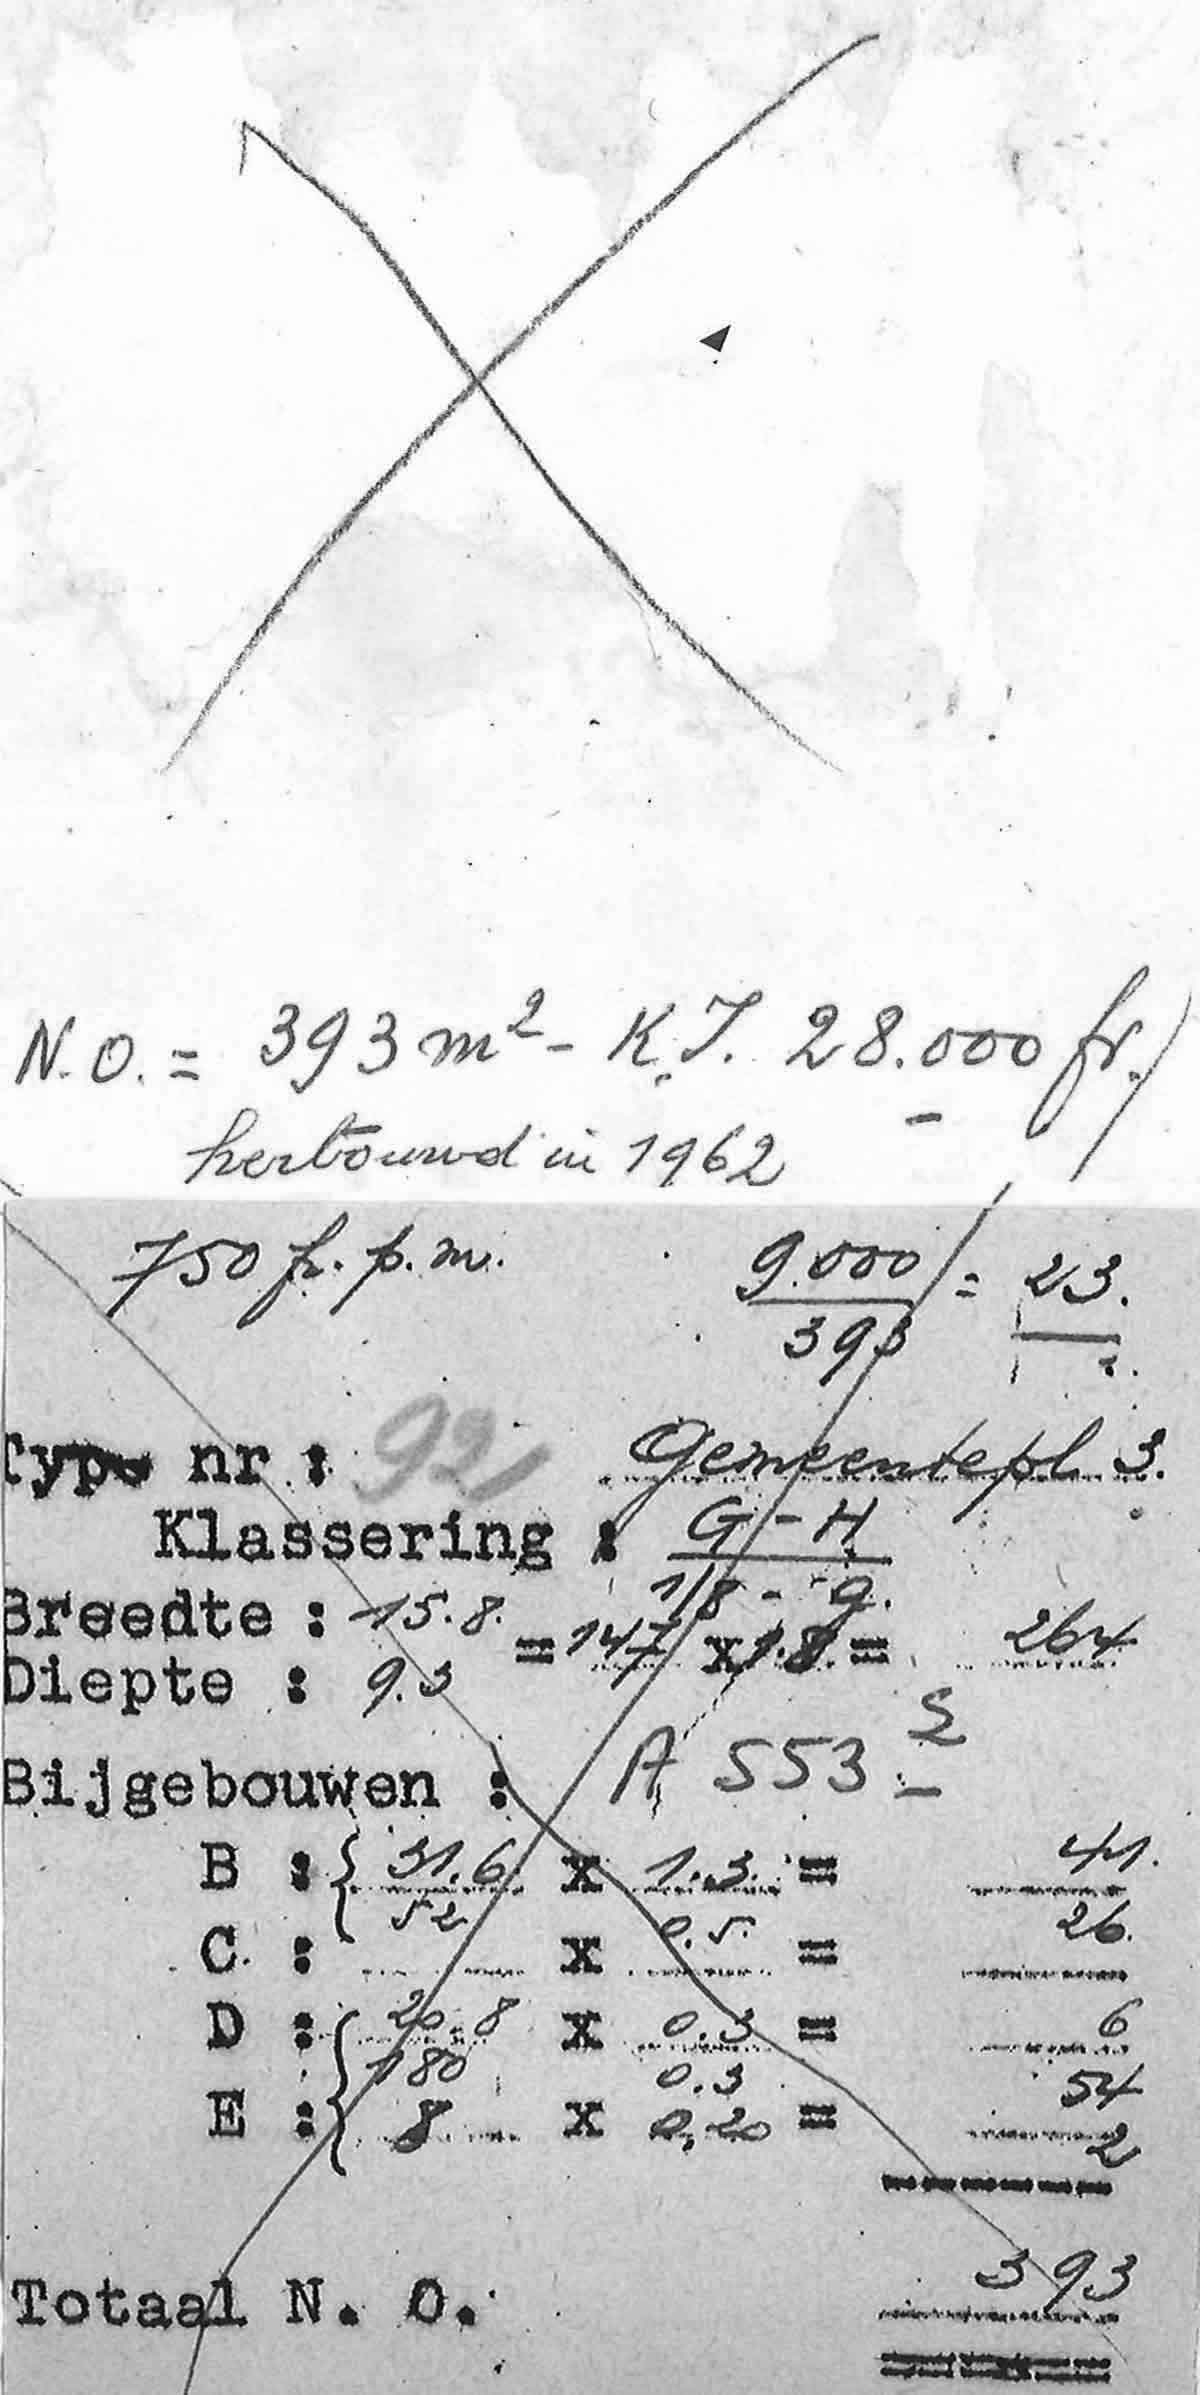 N.O. = 393 m² - K.I. 28.000 fr.
herbouwd in 1962
750 fr. p.m. 9.000 / 393 = 23.
Type nr : 92 Gemeentepl. 3.
Klassering : G - H
1/8 - g.
Breedte : 15.8.
= 147 x 1.8 = 264
Diepte : 9.3
Bijgebouwen : A 553
B : { 31.6 x 1.3 = 41.
52 0.5. 26.
C : x =
D : { 20.8 x 0.3 = 6
180 0.3 54
E : 8 x 0,20 = 2
Totaal N. O. 393